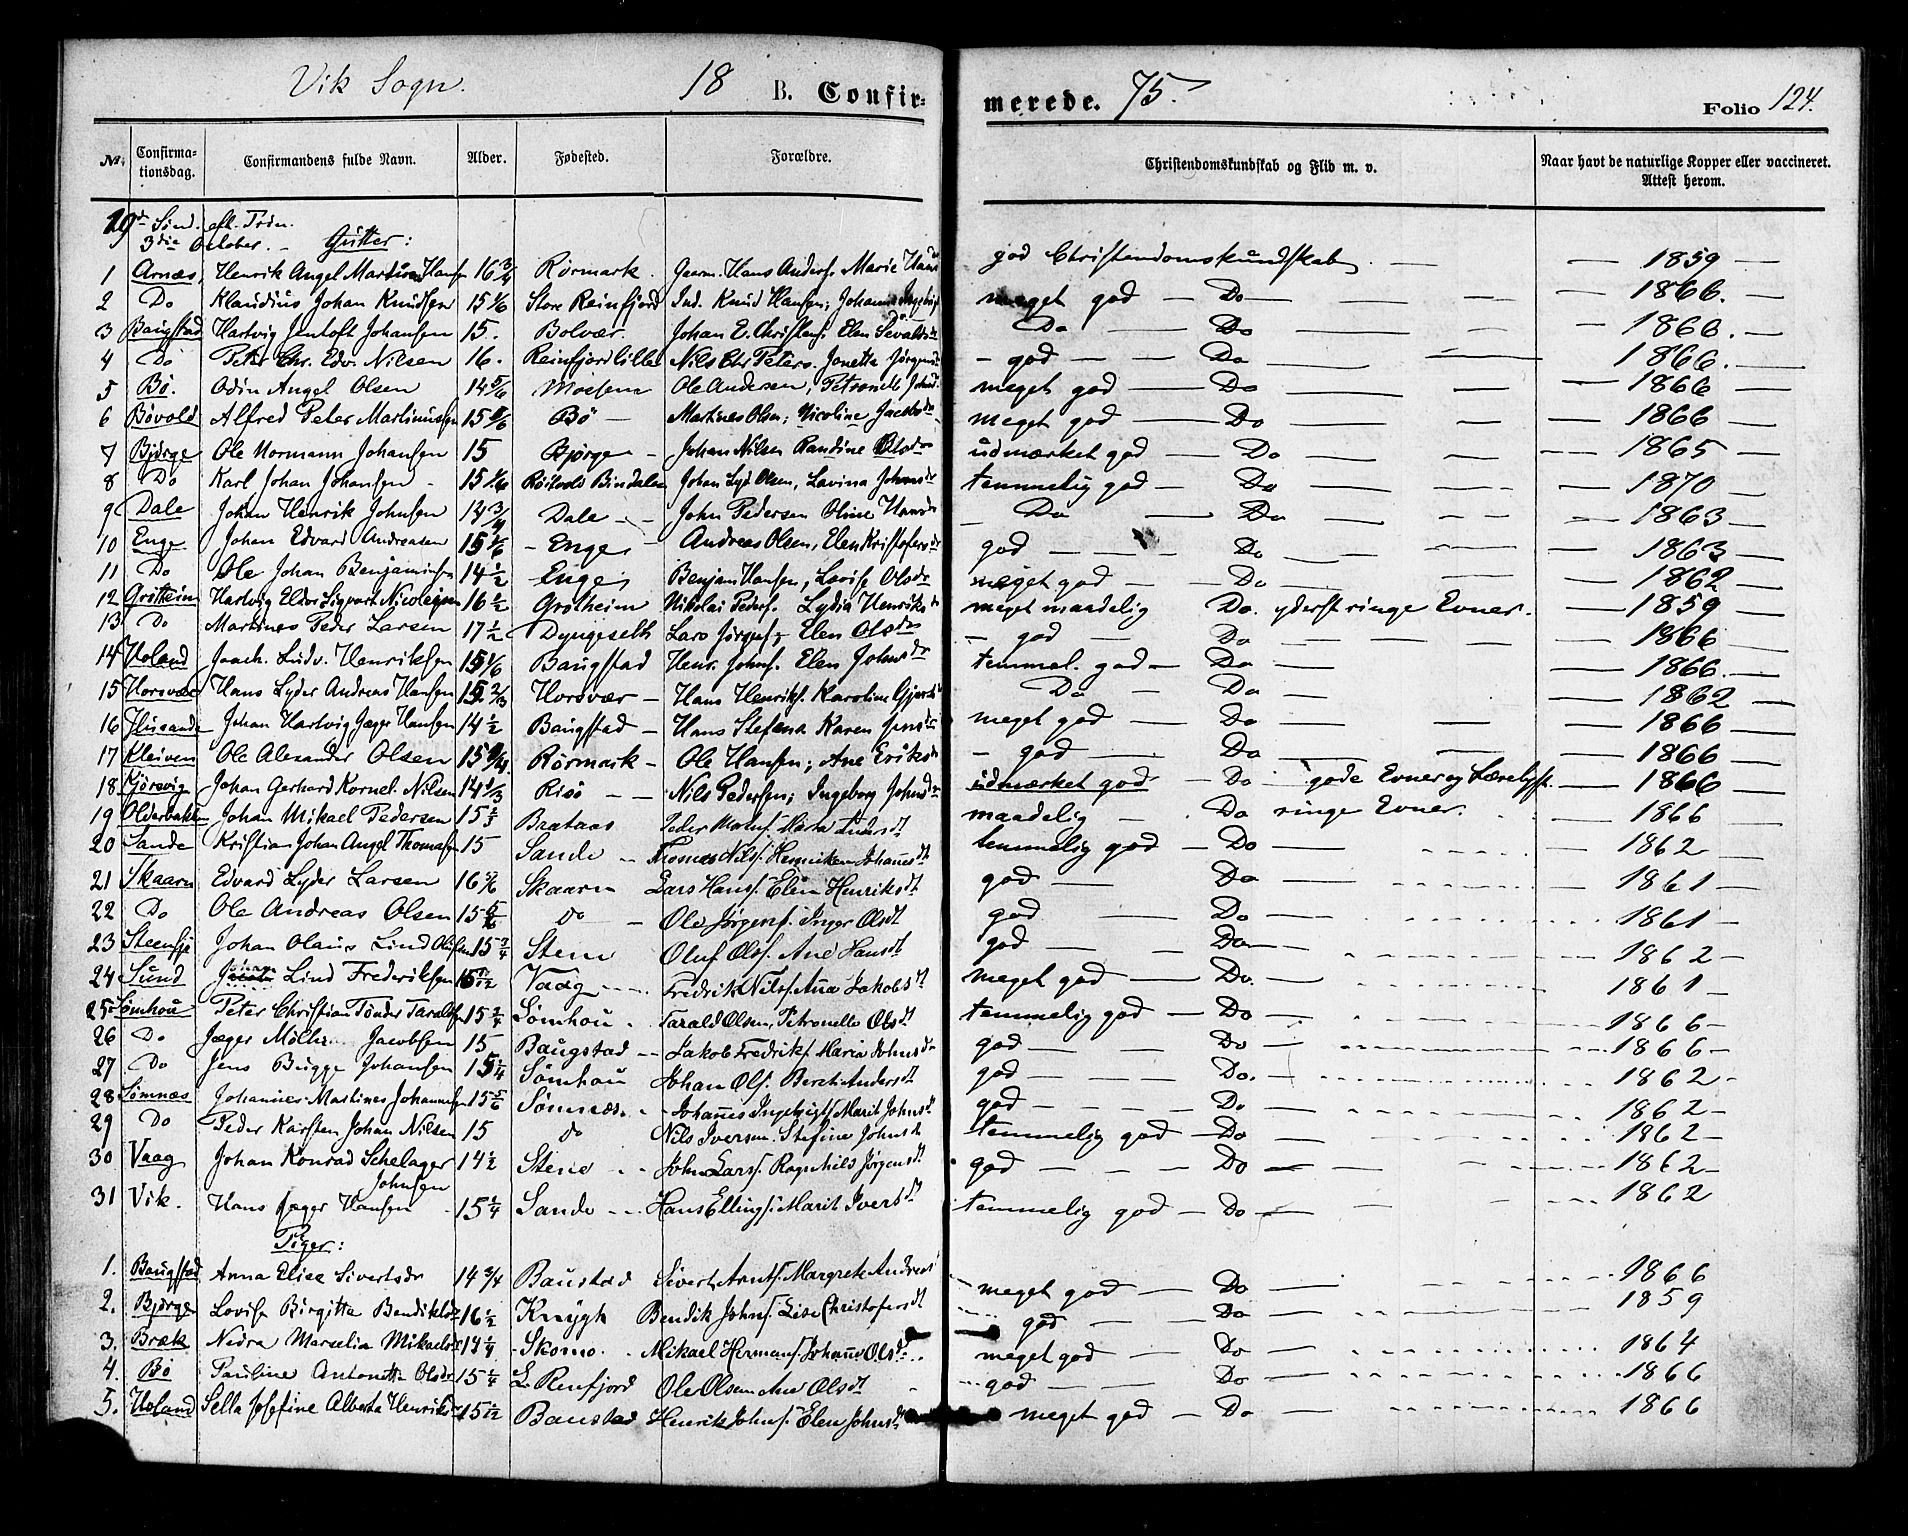 Vik Sogn. 18 B. Confirmerede. 75. Folio 124.
No. Confirmationsdag. Confirmandens fulde Navn. Alder. Fødested. Forældre. Christendomskundskab og Flid m. v. Naar havt de naturlige Kopper eller vaccineret. Attest herom.
19de Sønd. eft. Trin.
3die October. – Gutter:
1 Arnæs, Henrik Angel Hansen 16 3/4 Rørmark. Hans Anders. Marie god Christendomskundskab 1859
2 Do Klaudius Johan Knudsen 15 1/6 Store Reinfjord Ind. Knud Hansen; meget god – Do 1866.
3 Baugstad Hartvig Jentoft Johansen 15. Bolvær. Johan E. Christens. Elen Do Do 1866.
4 Do Peter Chr. Edv. Nilsen 16. Reinfjord lille Nils Chr Peters. Jonetta god – Do 1866.
5 Bø. Odin Angel Olsen 14 5/6 Moesene Ole Andersen, meget god – Do 1866
6 Bøvold Alfred Peter Martinussen 15 Bø – Martines Olsen; Nicoline Jacobsdr meget god – Do 1866
7 Bjørge Ole Normann Johansen 15 Bjørge – Johan Nilsen Randine Olsdr udmærket god – Do 1865
8 Do Karl Johan Johansen 15 1/6 Bindalen Johan Lyd Olsen, Lavina Johnsdr temmelig god – Do 1870
9 Dale Johan Henrik Johnsen 14 3/4 Dale – John Pedersen Oline Hansdr Do Do 1863
10 Enge Johan Edvard Andreasen 15 1/6 Enge Andreas Olsen, Elen Kristofersdr god – Do 1863
11 Do Ole Johan Benjaminsen 14 1/2 Enge Benjam Hansen, Lovise Olsdr meget god – Do 1862
12 Grøtheim Hartvig Eldor Sigvart Nicolaisen 16 1/2 Grøtheim Nikolai Peders. Lydia Henriksdr meget maadelig Do. yderst ringe Evner. 1859
13 Do Martines Peder Larsen 17 1/2 Dyngeseth Lars Jørgens. Elen Olsdr – god – Do 1866
14 Holand Jach. Ludv. Henriksen 15 1/6 Baugstad Henr. Johns. Elen Johnsdr temmel. god – Do 1866.
15 Horsvær Hans Lyder Andreas Hansen 15 2/3 Horsvær – Hans Henriks. Karoline Do Do 1862
16 Johan Hartvig Jæger Hansen 14 1/2 Baugstad – Hans Karen Jensdr meget god – Do 1866
17 Kleiven Ole Alexander Olsen 15 Rørmark – Ole Hansen; Ane Eriksdr – god – Do 1866
18 Kjøsvig Johan Gerhard Kornel. Nilsen 14 1/3 Risø – Nils Pedersen; Ingeborg Johnsdr udmærket god – Do gode Evner og Lærelyst. 1866
19 Olderbakken Johan Mikael Pedersen 15 Brataas Peder Maria maadelig – Do ringe Evner. 1866
20 Sande Kristian Johan Angel Thomasen 15 Sande – Thomas Nils. temmelig god – Do 1862
21 Skaarn Edvard Lyder Larsen 16 5/6 Skaarn Lars Hans. Elen Henriksdt god – Do 1861
22 Do Ole Andreas Olsen 15 5/6 Do – Ole Jørgens. Inger Olsdt god Do 1861
23 Johan Olaus Lind Olufsen 15 3/4 Stene Oluf Ols. Ane Hansdt god – Do 1862
24 Sund Lind Frederiksen Vaag Fredrik Nils. Ana Jakobsdt meget god – Do. 1861
25 Sømhou Peter Christian Tønder Taraldsen 15 3/4 Sømhou. Tarald Olsen, Petronelle Olsdt temmelig god – Do 1866
26 Do Jæger Møller Jacobsen 15 Baugstad – Jakob Fredriks. Maria Johnsdr god – Do 1866
27 Do Jens Bugge Johansen 15 1/4 Sømhou Johan Ols. Berit Andersdt god – Do. 1862
28 Sømnæs Johannes Martines Johannesen 15 5/6 Sømnæs. Marit Johnsdt god – Do 1862
29 Do Peder Karsten Johan Nilsen 15 do Nils Iversen. Stefine Johnsdt temmelig god – Do 1862
30 Vaag Johan Konrad Schelager 14 1/2 Stene John Lars. Ragnhild Jørgensdt god – Do 1862
Johnsen
31 Vik. Hans Jæger Hansen 15 1/4 Sande Hans Ellings. Marit Iversdt temmelig god – Do 1862
Piger:
1. Baugstad Anna Elise Sivertsdr 14 3/4 Baustad Sivert Arnts. Margrete Andreas meget god – Do 1866
2. Bjørge Lovise Birgitta Bendiksdr 16 1/2 Krøgh Bendik Johns. Lise Christofersdt god – Do 1859
3. Bræk Nedra Marselia Mikaelsdr 14 1/4 Skomo. Mikael Hermans. Johanne Olsdr meget god – Do 1864
4. Bø Pauline Antonette Olsdr 15 1/4 L. Renfjord Ole Olsen Ane Olsdt god – Do 1866
5. Holand Sella Josefine Alberta Henriksdr 15 Baustad Henrik Johns. Elen Johnsdt meget god – Do 1866